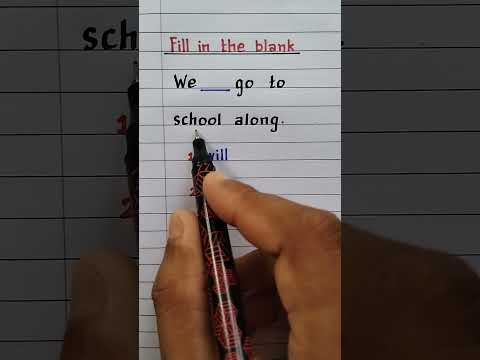 Fill in the blank
We ___ go to
school along.
will